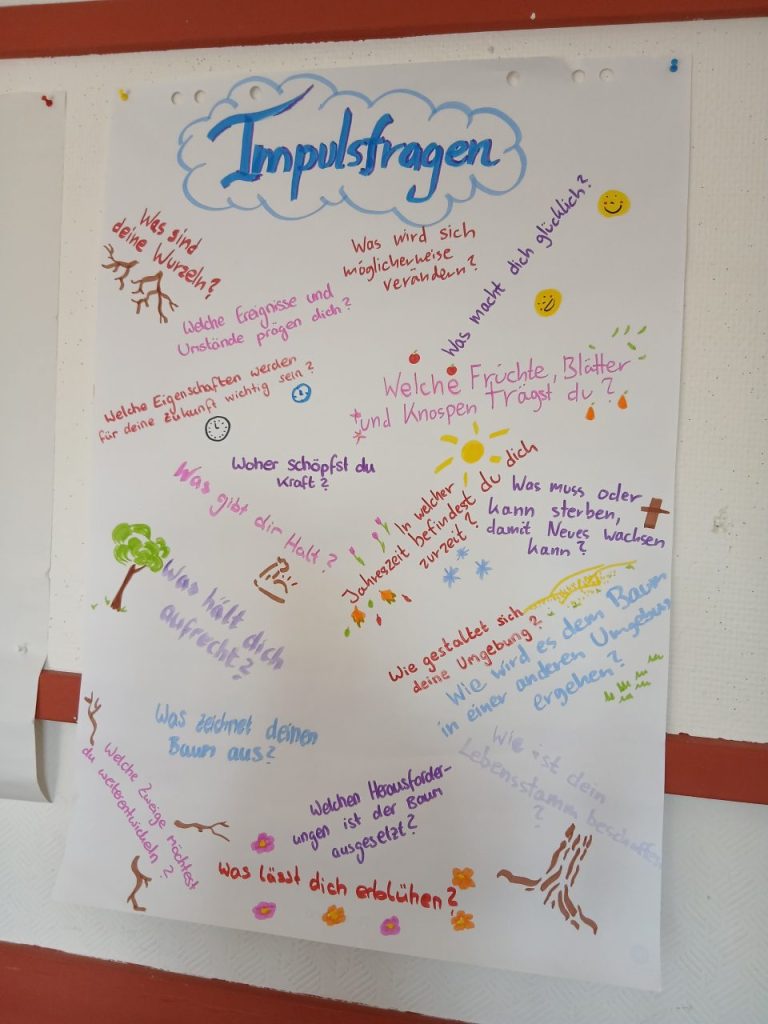 Impulsfragen
Was sind
deine Wurzeln?
Was wird sich
möglicherweise
verändern?
Was macht dich glücklich?
Welche Ereignisse und
Umstände prägen dich?
Welche Eigenschaften werden
für deine Zukunft wichtig sein?
Welche Früchte, Blätter
und Knospen trägst du?
Woher schöpfst du
Kraft?
Was gibt dir Halt?
In welcher
Jahreszeit befindest du dich
zurzeit?
Was muss oder
kann sterben,
damit Neues wachsen
kann?
Was hält dich
aufrecht?
Wie gestaltet sich
deine Umgebung?
Wie wird es dem Baum
in einer anderen Umgebung
ergehen?
Was zeichnet deinen
Baum aus?
Wie ist dein
Lebensstamm beschaffen
?
Welche Zweige möchtest
du weiterentwickeln?
Welchen Herausforder-
ungen ist der Baum
ausgesetzt?
Was lässt dich erblühen?